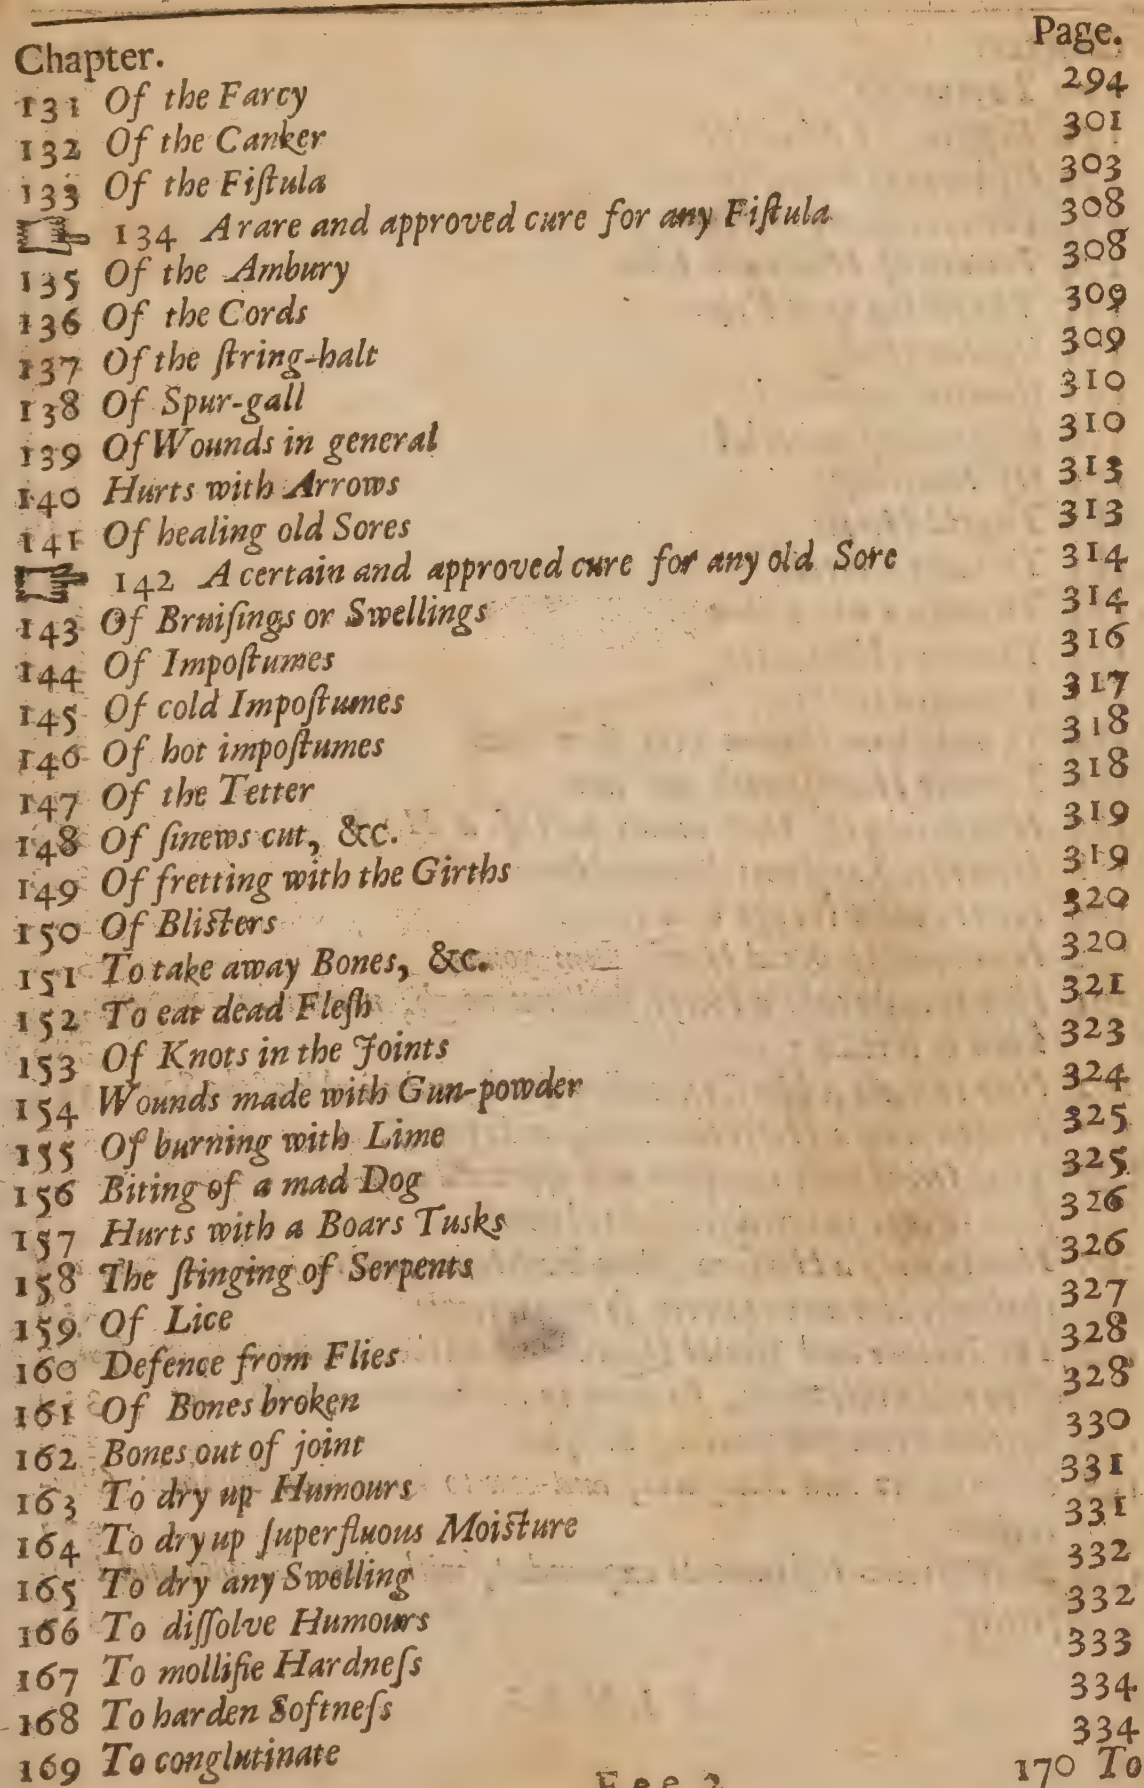 Chapter. Page.
131 Of the Farcy 294
132 Of the Canker 301
133 Of the Fiſtula 303
134 A rare and approved cure for any Fiſtula 308
135 Of the Ambury 308
136 Of the Cords 309
137 Of the ſtring-halt 309
138 Of Spur-gall 310
139 Of Wounds in general 310
140 Hurts with Arrows 313
141 Of healing old Sores 313
142 A certain and approved cure for any old Sore 314
143 Of Bruiſings or Swellings 314
144 Of Impoſtumes 316
145 Of cold Impoſtumes 317
146 Of hot impoſtumes 318
147 Of the Tetter 318
148 Of ſinews cut, &c. 319
149 Of fretting with the Girths 319
150 Of Bliſters 320
151 To take away Bones, &c. 320
152 To eat dead Fleſh 321
153 Of Knots in the Joints 323
154 Wounds made with Gun-powder 324
155 Of burning with Lime 325
156 Biting of a mad Dog 325
157 Hurts with a Boars Tusks 326
158 The ſtinging of Serpents 326
159 Of Lice 327
160 Defence from Flies 328
161 Of Bones broken 328
162 Bones out of joint 330
163 To dry up Humours 331
164 To dry up ſuperfluous Moiſture 331
165 To dry any Swelling 332
166 To diſſolve Humours 332
167 To mollifie Hardneſs 333
168 To harden Softneſs 334
169 To conglutinate 334
Eee 2 170 To